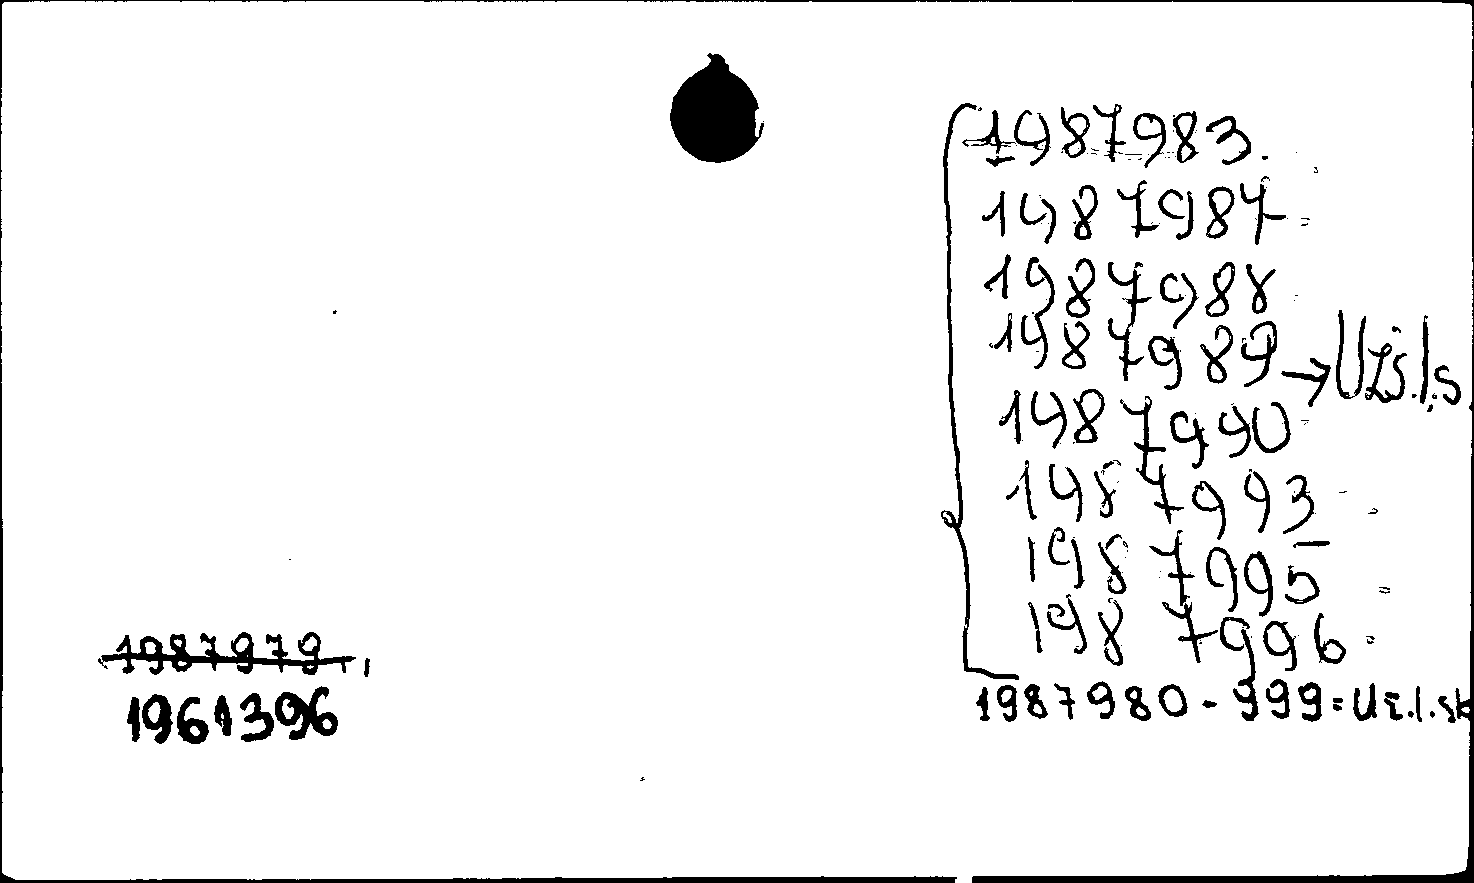 1987983.
1987987
1987988
1987989 → Užš.l.s.
1987990
1987993
1987995
1987996
1987979.
1961396
1987980 - 999 = Už.l.sk